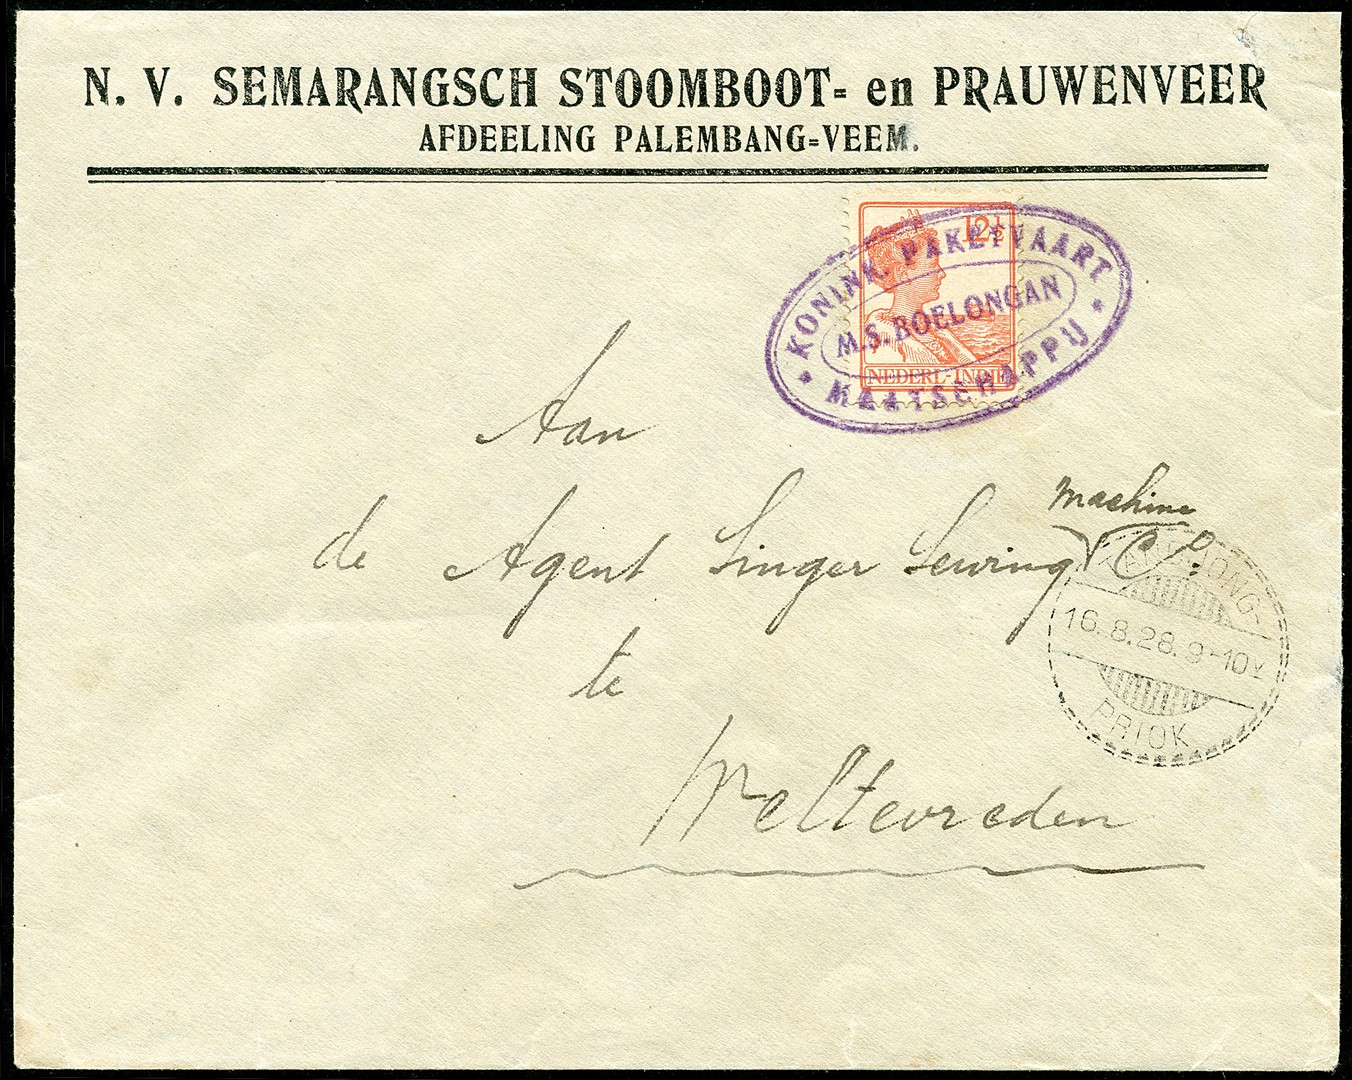 N. V. SEMARANGSCH STOOMBOOT= en PRAUWENVEER
AFDEELING PALEMBANG=VEEM.
12½
NEDERL-INDIE
KONINK. PAKETVAART
M.S. BOELONGAN
MAATSCHAPPIJ
Aan
machine
de Agent Singer Sewing Co.
te
Weltevreden
TANDJONG-
16.8.28.9-10V
PRIOK